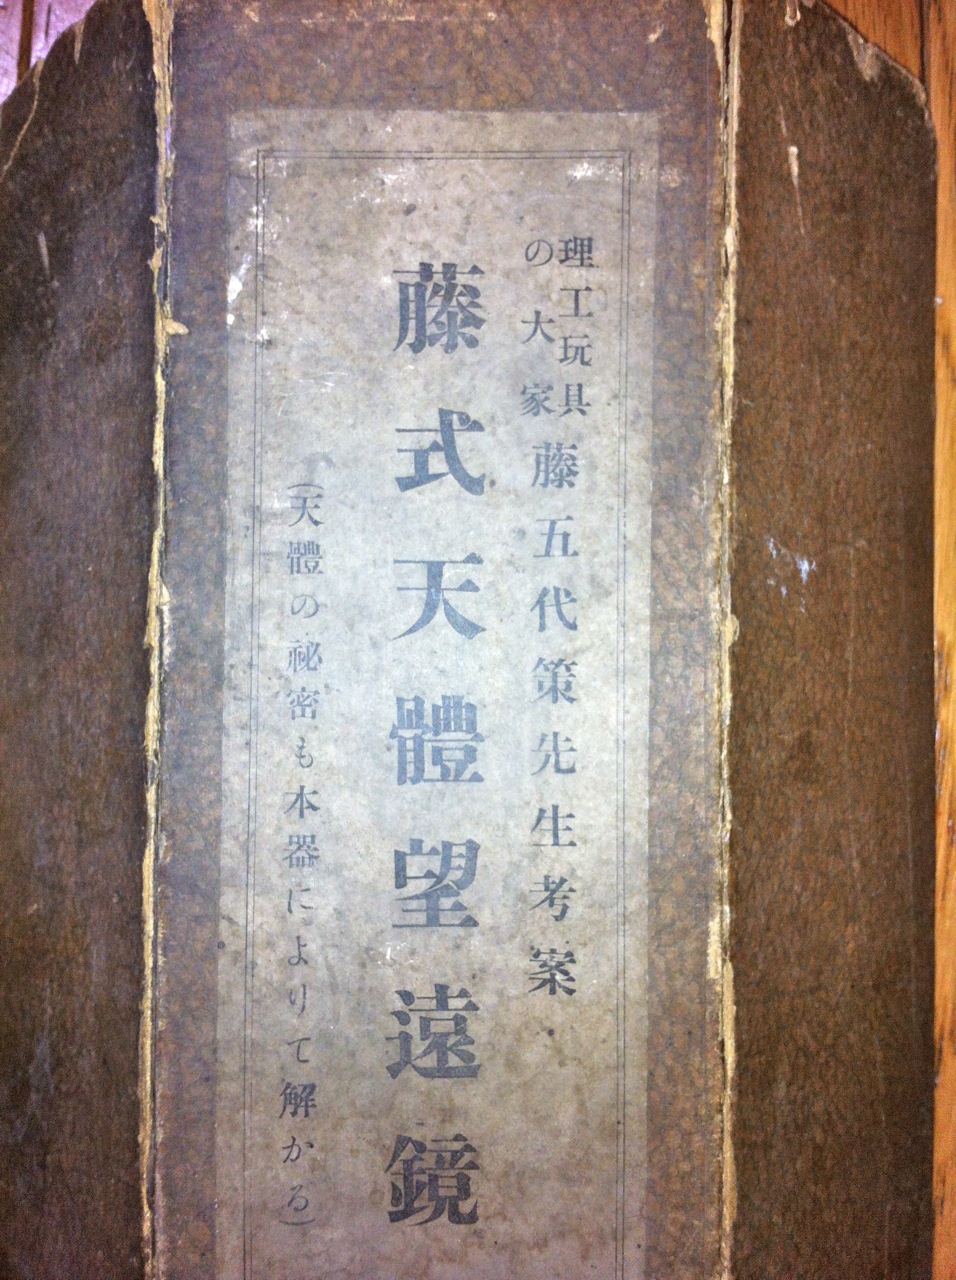 理工玩具
の大家
藤五代策先生考案
藤式天體望遠鏡
(天體の祕密も本器によりて解かる)